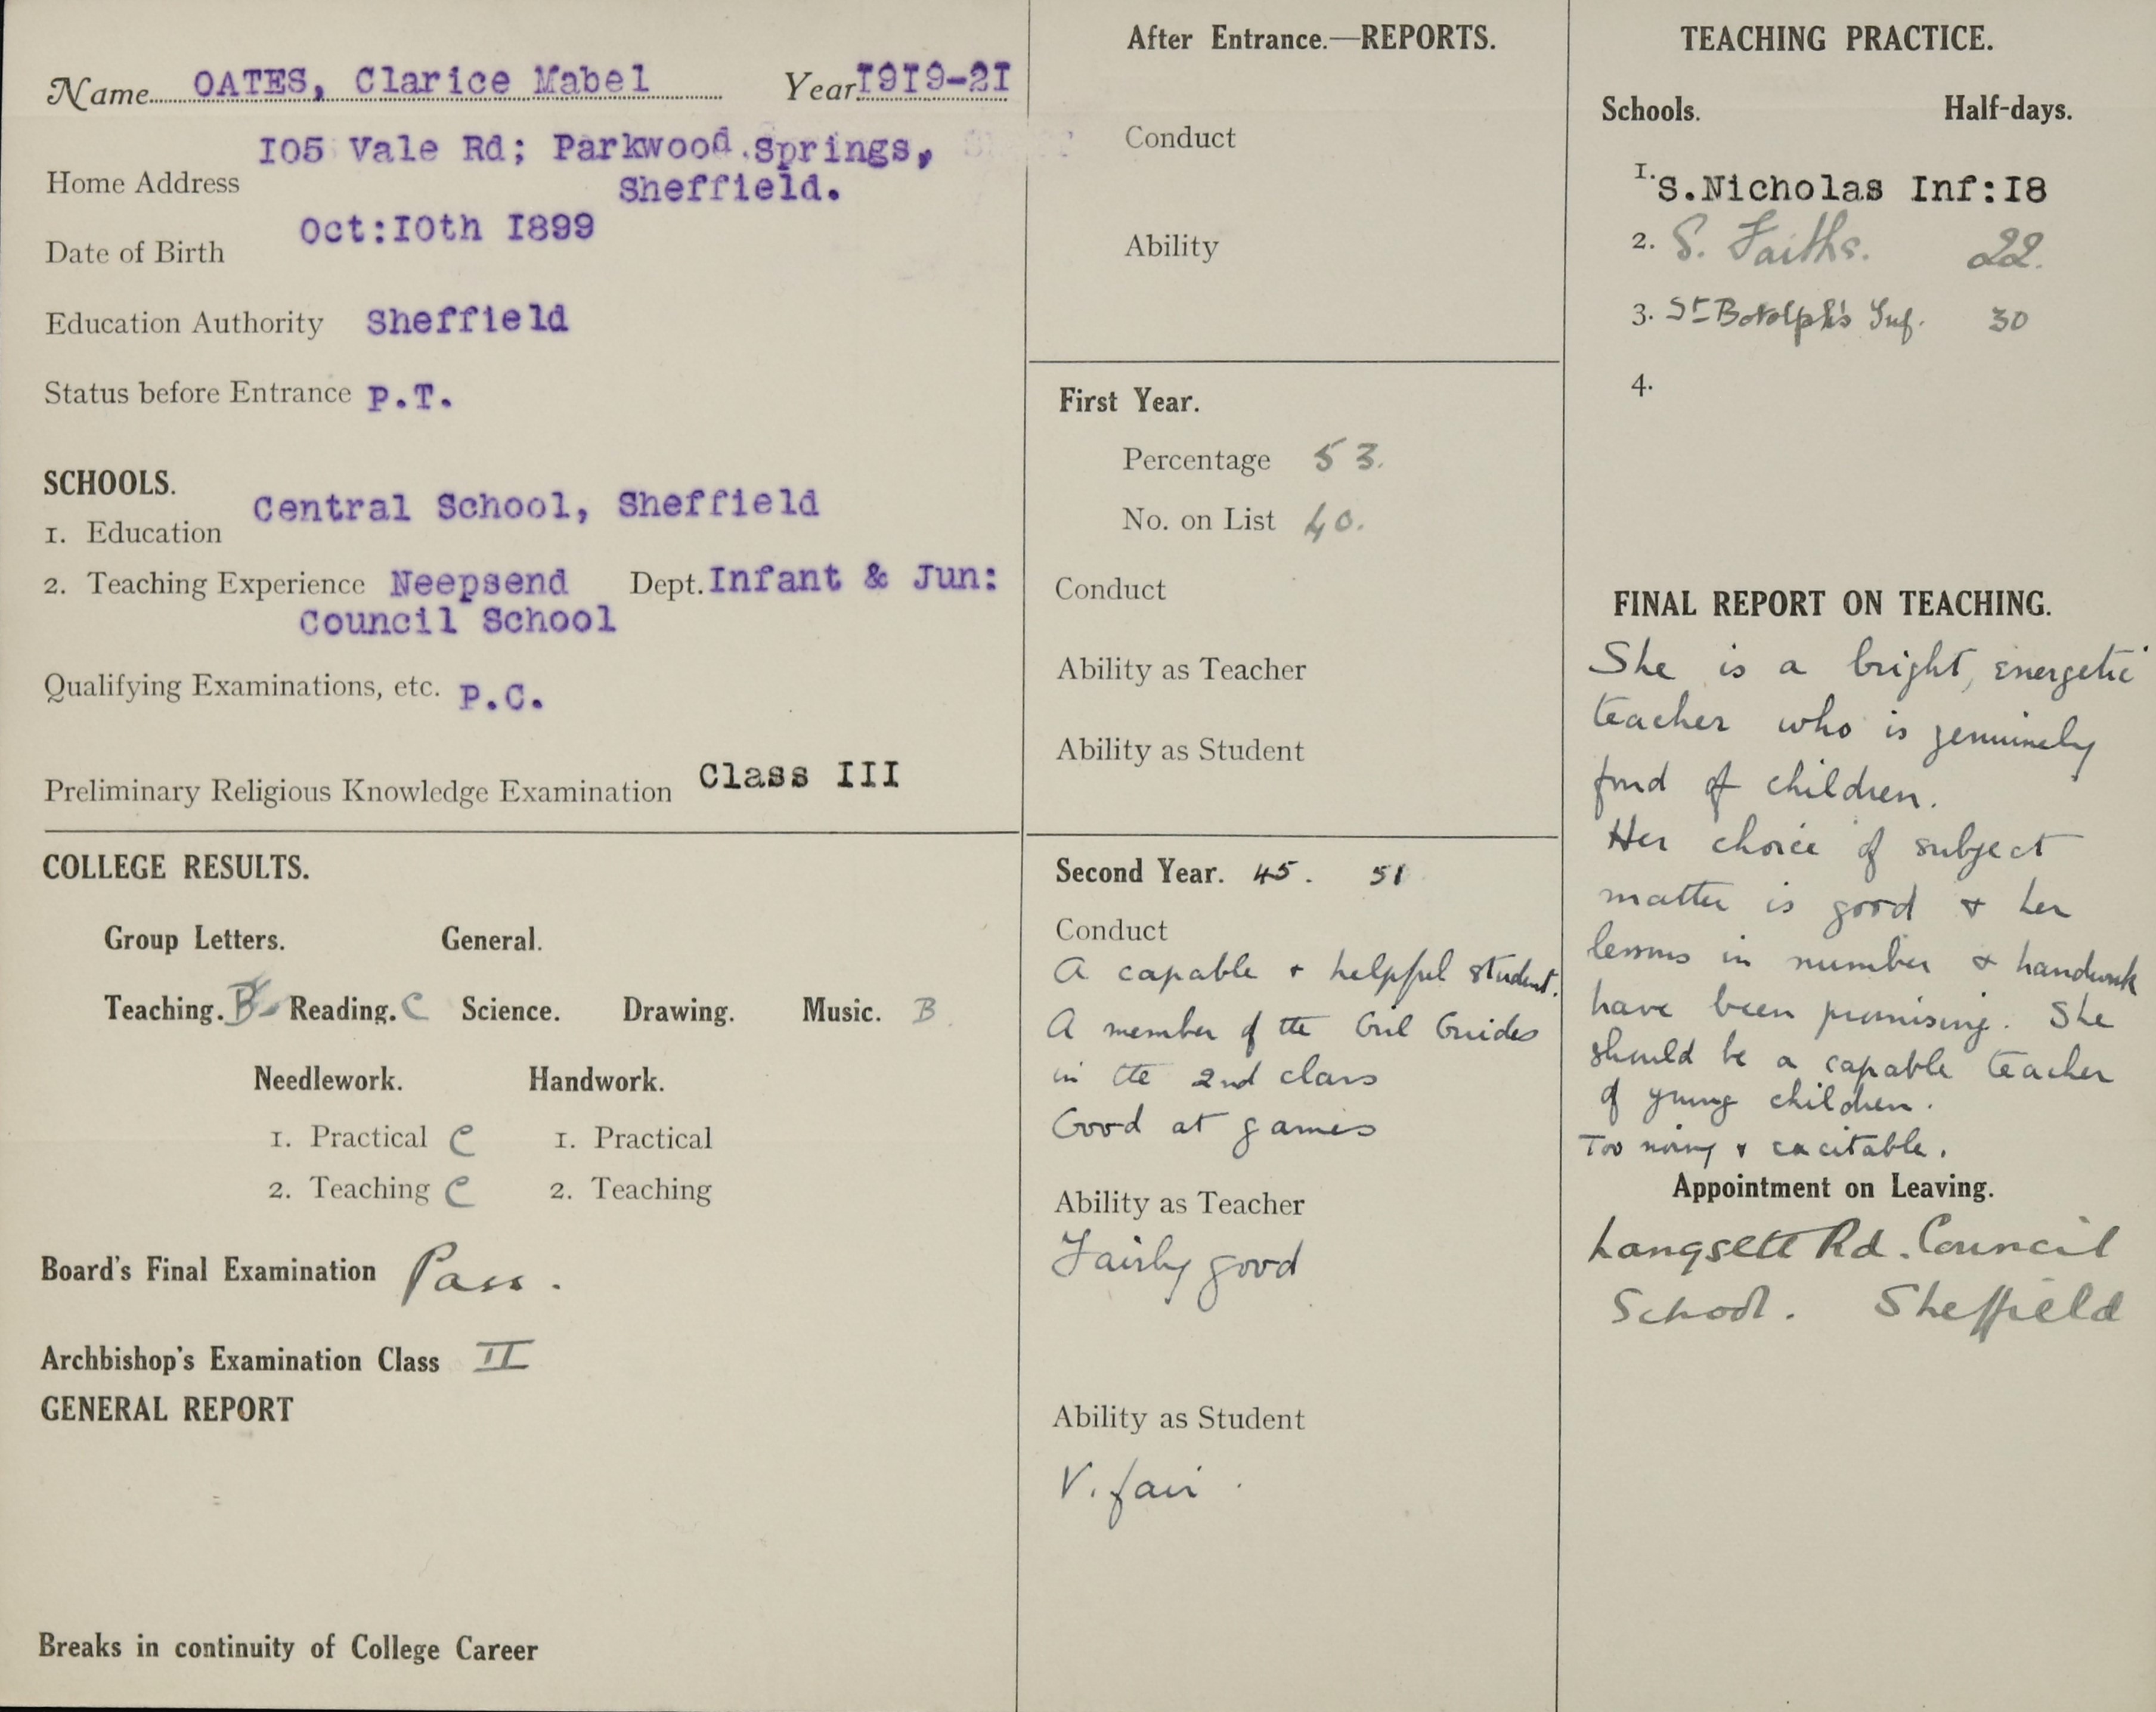 Name OATES, Clarice Mabel Year I9I9-2I
I05 Vale Rd; Parkwood Springs,
Home Address Sheffield.
Date of Birth Oct:I0th I899
Education Authority Sheffield
Status before Entrance P.T.
SCHOOLS.
1. Education Central School, Sheffield
2. Teaching Experience Neepsend Dept. Infant & Jun:
Council School
Qualifying Examinations, etc. P.C.
Preliminary Religious Knowledge Examination Class III
COLLEGE RESULTS.
Group Letters. General.
Teaching. B Reading. C Science. Drawing. Music. B
Needlework. Handwork.
1. Practical C 1. Practical
2. Teaching C 2. Teaching
Board's Final Examination Pass.
Archbishop's Examination Class II
GENERAL REPORT
Breaks in continuity of College Career
After Entrance.—REPORTS.
Conduct
Ability
First Year.
Percentage 53.
No. on List 40.
Conduct
Ability as Teacher
Ability as Student
Second Year. 45. 51
Conduct
A capable & helpful student.
A member of the Girl Guides
in the 2nd class
Good at games
Ability as Teacher
Fairly good
Ability as Student
V. fair.
TEACHING PRACTICE.
Schools. Half-days.
I. S.Nicholas Inf:I8
2. S. Faiths. 22.
3. St Botolph's Inf. 30
4.
FINAL REPORT ON TEACHING.
She is a bright, energetic
teacher who is genuinely
fond of children.
Her choice of subject
matter is good & her
lessons in number & handwork
have been promising. She
should be a capable teacher
of young children.
Too noisy & excitable.
Appointment on Leaving.
Langsett Rd. Council
School. Sheffield